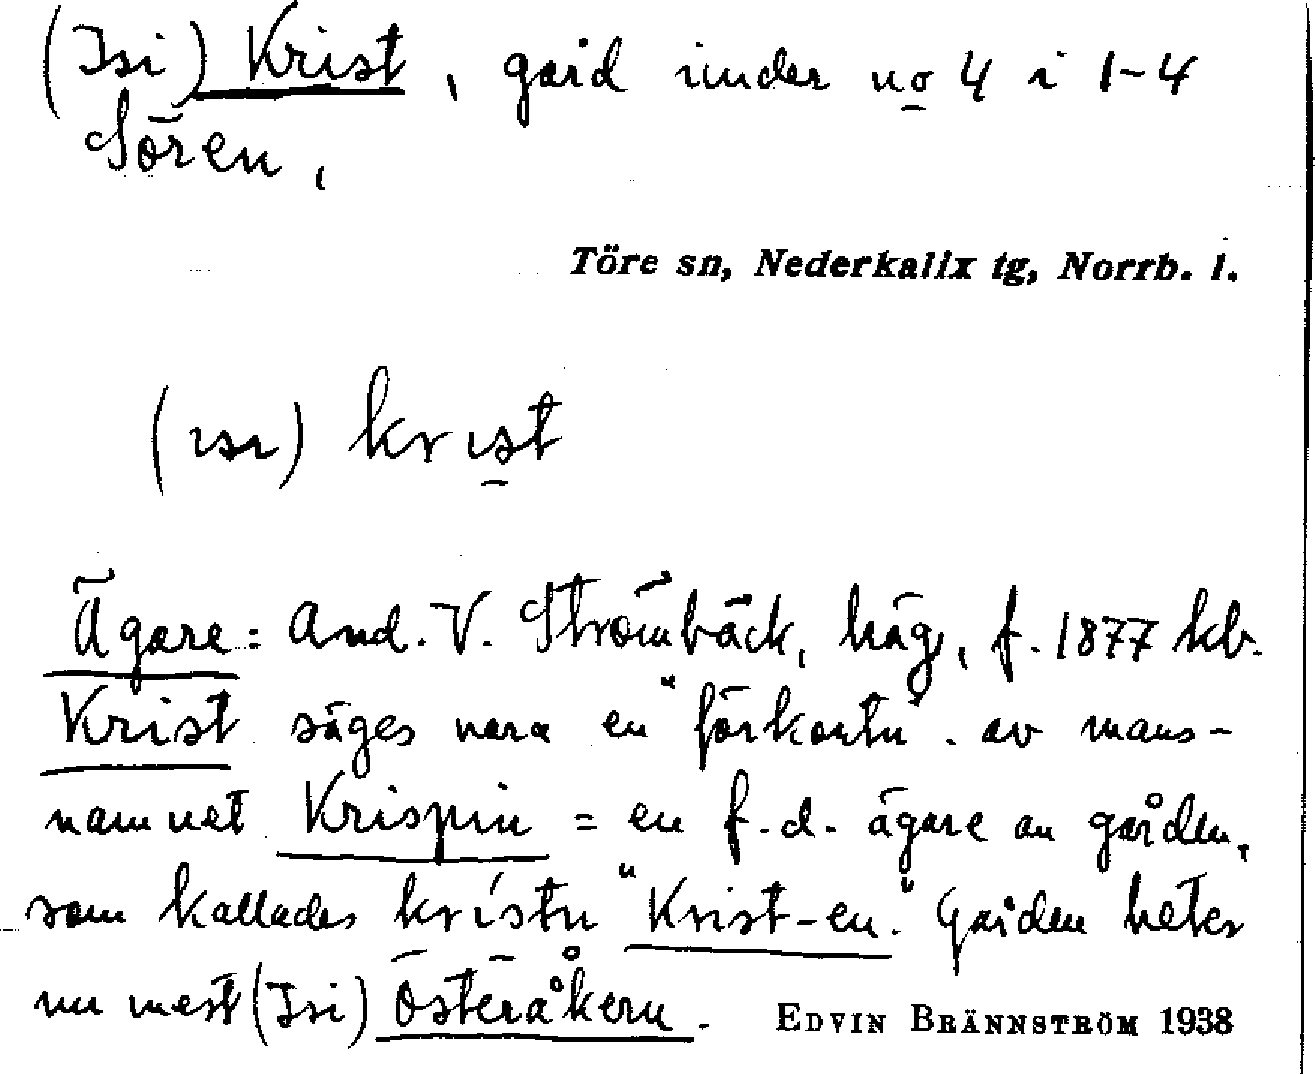 (Isi) Krist, gård under no 4 i 1-4
Sören,
Töre sn, Nederkalix tg, Norrb. l.
(ısı) krıst
Ägare: And. V. Strömbäck, häg, f. 1877 kb.
Krist säges vara en "förkortn". av mans-
namnet Krispin = en f.d. ägare av gården,
som kallades krístn "Krist-en." Gården heter
nu mest (Isi) Österåkern.
EDVIN BRÄNNSTRÖM 1938